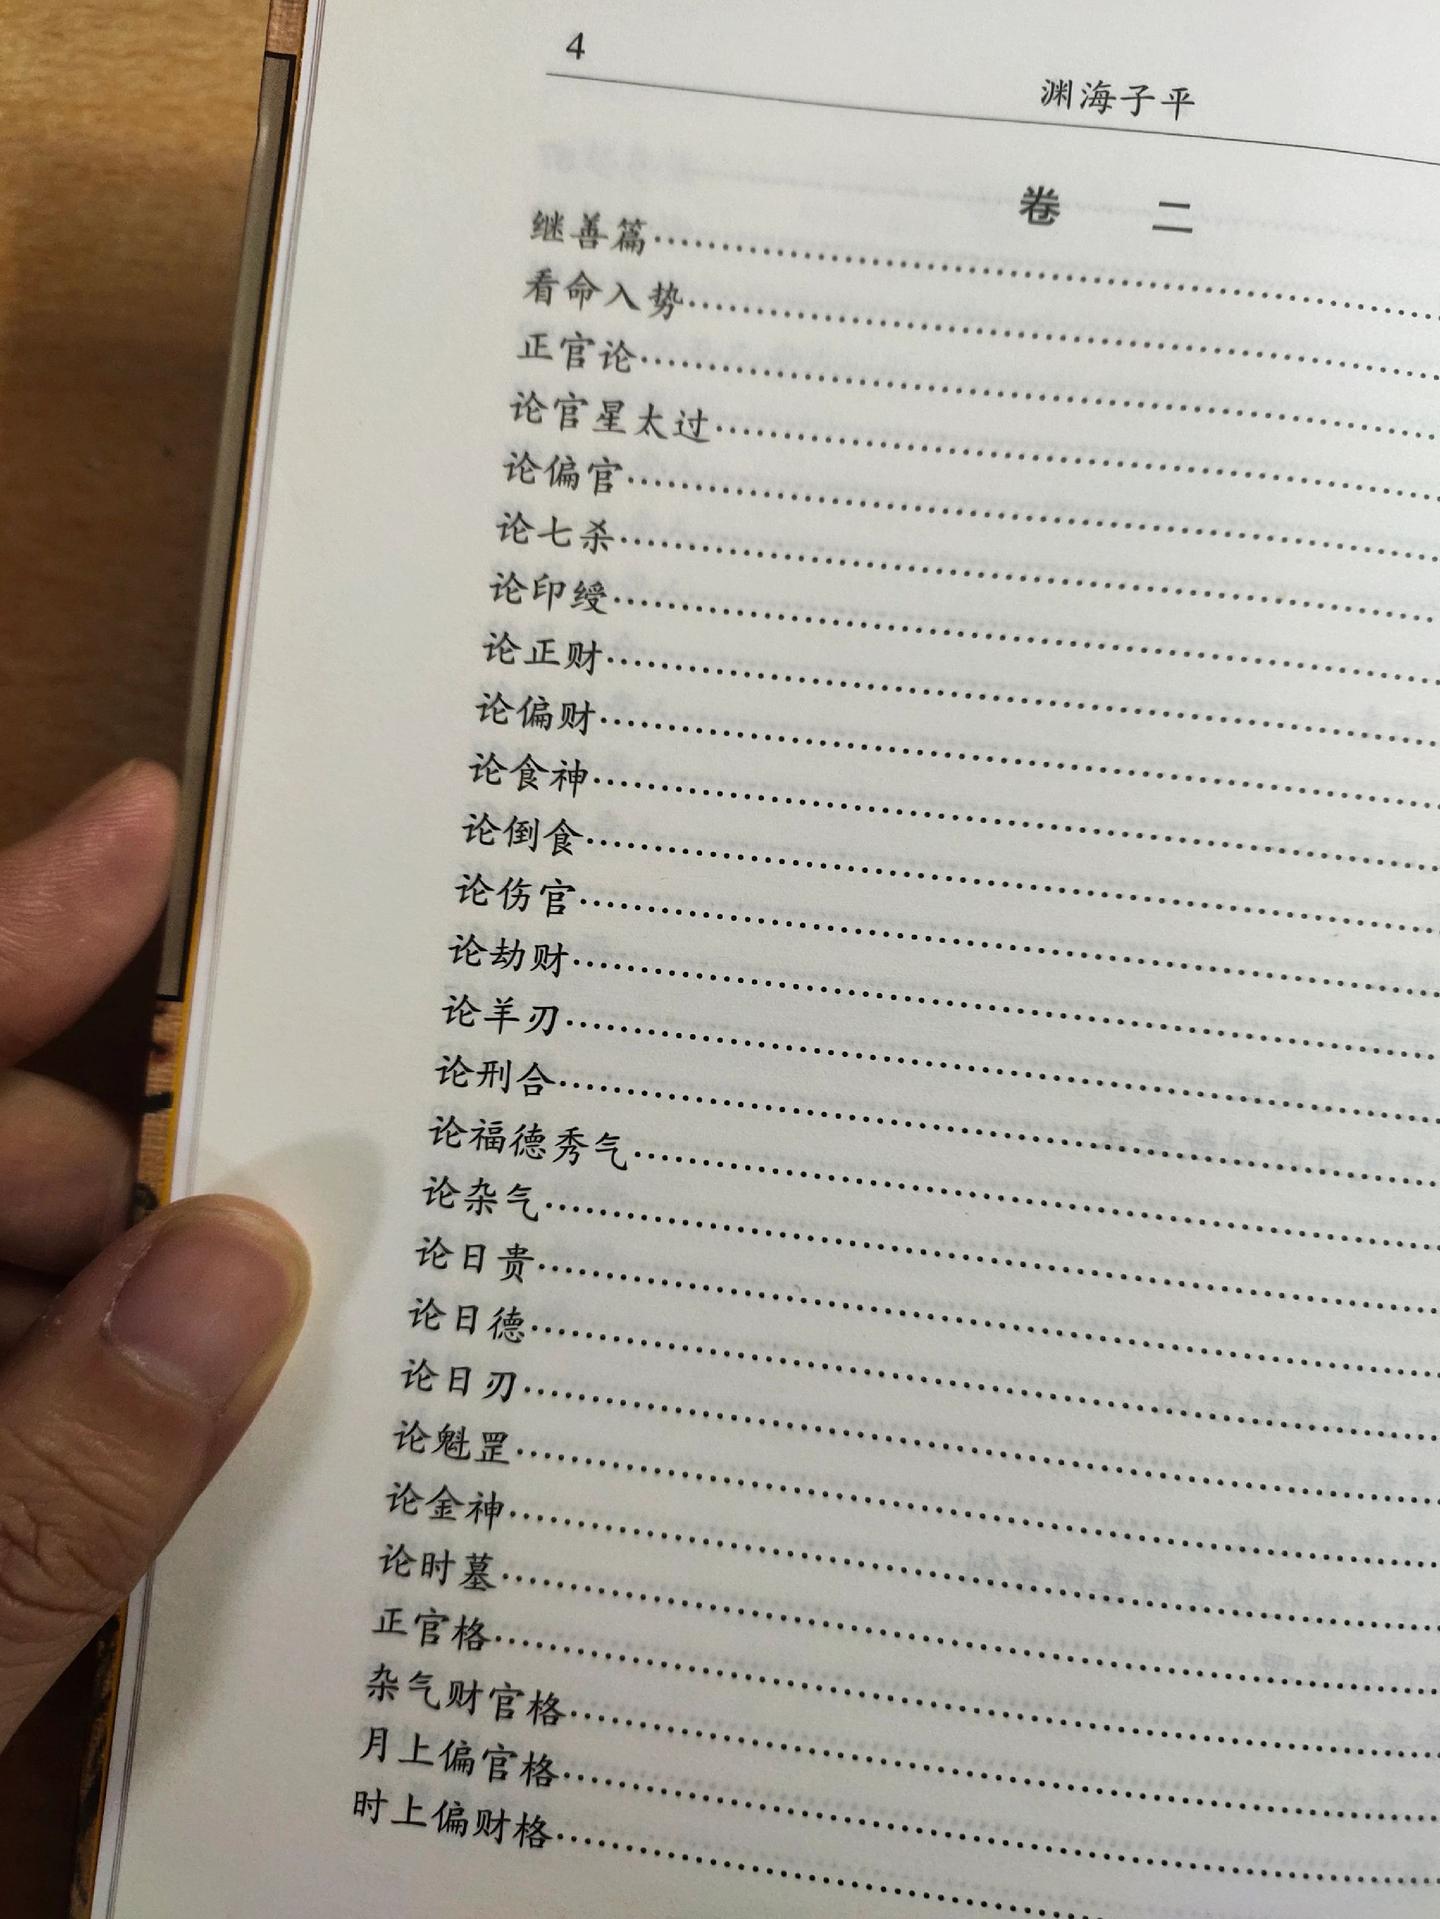 4
渊海子平
卷 二
继善篇
看命入势
正官论
论官星太过
论偏官
论七杀
论印绶
论正财
论偏财
论食神
论倒食
论伤官
论劫财
论羊刃
论刑合
论福德秀气
论杂气
论日贵
论日德
论日刃
论魁罡
论金神
论时墓
正官格
杂气财官格
月上偏官格
时上偏财格